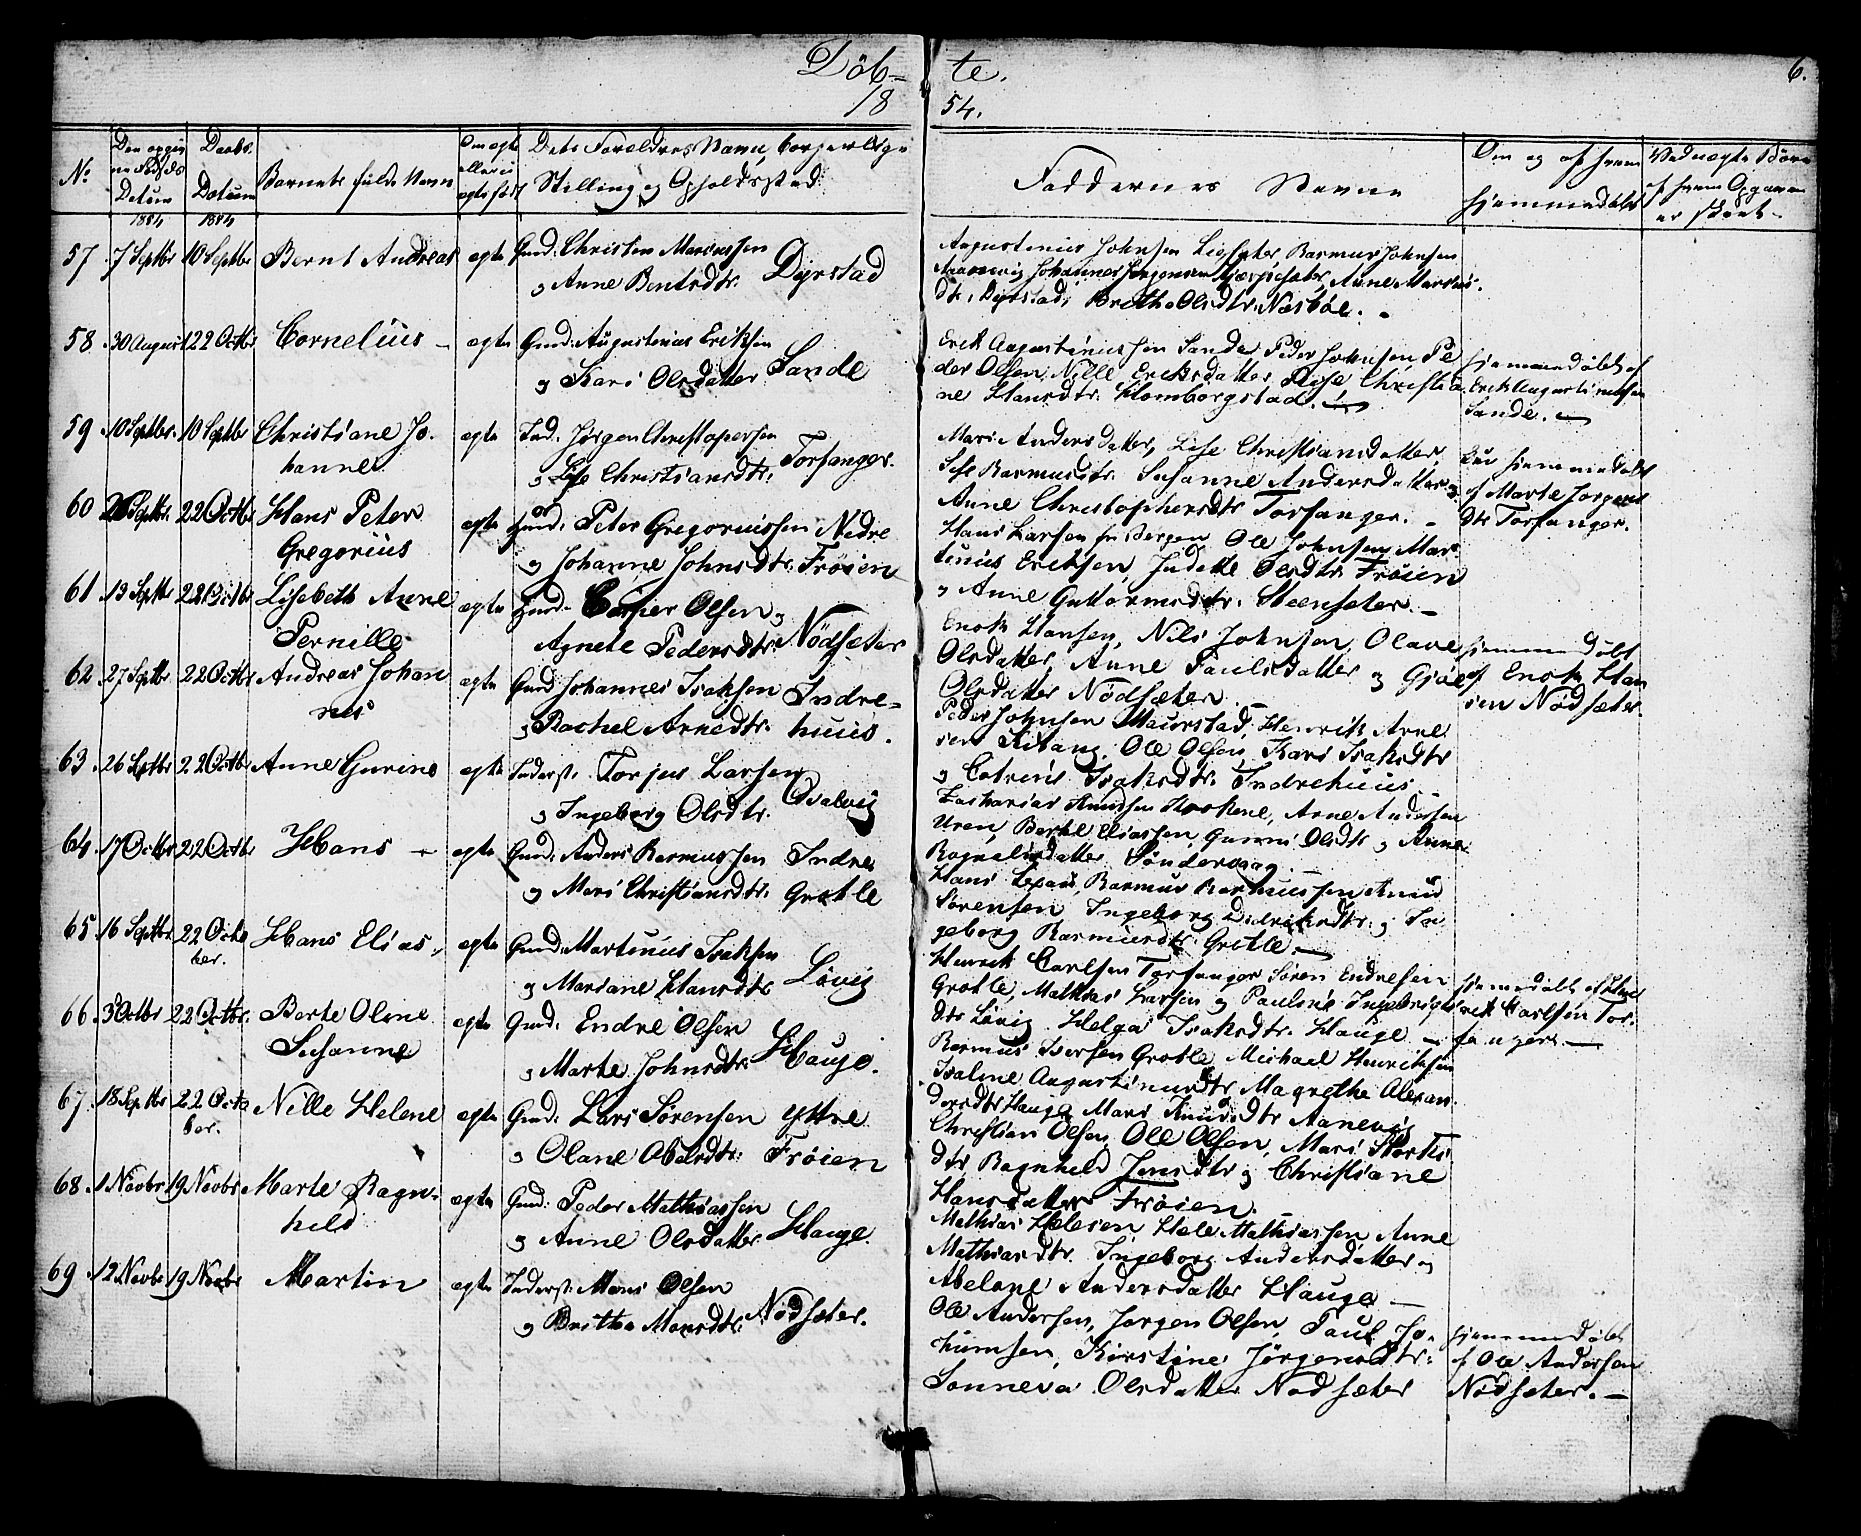 Döb- te. 6.
18 54.
No Den opgivne Födsels Datum Daabs Datum Barnets fulde Navn Om egte eller u egte født Dets Forældres Navn, borgerlige Stilling og Opholdssted
Faddernes Navne
Om og af hvem hjemmedøbt
Ved uegte Börn
1854 1854
57 7 Septbr 10 Septbr Bernt Andreas egte Gmd: Christen Mariussen
og Anne Berntsdtr. Dyrstad
Augustinius Johnsen Liesæter Rasmus Johnsen
Johannes Jørgensen Anne Marius
dtr. Dyrstad, Brethe Olsdtr. Næsböe.
58 30 August 22 Octbr Cornelius egte Gmd: Augustinus Eriksen
og Kari Olsdatter Sande
Erik Augustinussen Sande, Peder Johnsen, Pe
der Olsen, Nille Eriksdatter, Christia
ne Hansdtr. Homborgstad.
hjemmedøbt af
Erik Augustinussen
Sande.
59 10 Septbr. 10 Septbr Christiane Jo-
hanne egte Ind: Jørgen Christophersen
og Lise Christiansdtr. Torfanger.
Mari Andersdatter, Lise Christiansdatter,
Rasmusdtr. Susanne Andersdatter og
Anne Christophersdtr Torfanger.
hjemmedøbt
af Marte Jørgens
dtr Torfanger.
60 Septbr. 22 Octbr Hans Peter
Gregorius egte Gmd: Peter Gregoriussen Nedre
og Johanne Johnsdtr. Frøien
Hans Larsen fra Bergen, Ole Johnsen, Mar
tinius Eriksen, Judette Olsdtr. Frøien
og Anne Guttormsdtr. Steensæter.
61 13 Septbr 22 Octbr Lisebeth Anne
Pernille egte Gmd: Casper Olsen og
Agnete Pedersdtr. Nödsæter
Enok Hansen, Nils Johnsen, Olave
Olsdatter, Anne Paulsdatter og Gjøle
Olsdatter Nödsæter.
hjemmedøbt
af Enok Han
sen Nödsæter.
62 27 Septbr 22 Octbr Andreas Johan
nes egte Gmd Johannes Isaksen Indre-
og Rachel Arnedtr. huus.
Peder Johnsen Maurstad, Henrik Arne
sen Ole Olsen, Kari Isaksdtr
og Catrine Isaksdtr. Indrehuus.
63 26 Septbr 22 Octbr Anne Gurine egte Inderst: Torjus Larsen
og Ingeborg Olsdtr. Qvalvig
Zacharias Knudsen Arne Andersen
Uren, Bertel Eliassen, Gunni Olsdtr og Anne
64 17 Octbr 22 Octbr Hans egte Gmd: Anders Rasmussen Indre
og Mari Christiansdtr. Grotle
Hans Rasmus
Sørensen Ingeborg Didriksdtr. og In
geborg Rasmusdtr Grotle.
65 16 Septbr 22 Octo
ber. Hans Elias egte Gmd: Martinus Isaksen
og Mariane Hansdtr Lövig
Henrik Carlsen Torfanger Søren Endresen
Grotle, Mathias Larsen og Pauline Ingebrigts
dtr Lövig Helga Isaksdtr. Hauge
hjemmedøbt af Hen
rik Carlsen Tor-
fanger.
66 3 Octbr 22 Octbr. Berte Oline
Susanne egte Gmd: Endre Olsen
og Marte Johnsdtr. Hauge.
Rasmus Iversen Grotle, Michael Henriksen
Isaline Augustinusdtr Magrethe Alexan
dersdtr Hauge Mari Knudsdtr Aanevig
67 18 Septbr 22 Octo
ber. Nille Helene egte Gmd: Lars Sørensen Yttre
og Olane Abelsdtr: Frøien
Christian Olsen, Ole Olsen, Mari
dtr, Ragnhild Jensdtr og Christiane
Hansdatter Frøien.
68 1 Novbr 19 Novbr Marte Ragn-
hild egte Gmd: Peder Mathiassen
og Anne Olsdatter Hauge.
Mathias Helesen, Hele Mathiassen Anne
Mathiasdtr. Ingeborg Andersdatter og
Abelone Andersdatter Hauge
69 12 Novbr 19 Novbr Martin egte Inderst: Mons Olsen
og Brithe Monsdtr. Nödsæter.
Ole Andersen, Jørgen Olsen, Paul Jo-
humsen, Kirstine Jørgensdtr:
Sonneva Olsdatter Nödsæter
hjemmedøbt
af Ole Andersen
Nödsæter.